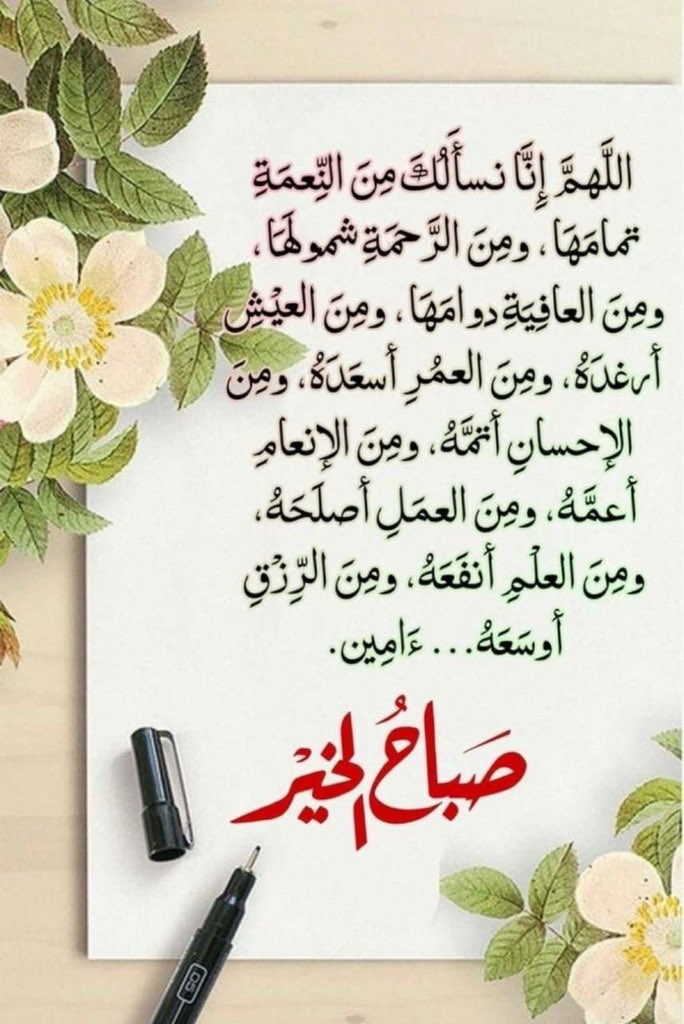 اللَّهمَّ إِنَّا نسأَلُكَ مِنَ النِّعمَةِ
تمامَهَا، ومِنَ الرَّحمَةِ شمولهَا،
ومِنَ العافِيَةِ دوامَهَا، ومِنَ العيْشِ
أرغدَهُ، ومِنَ العمُرِ أسعَدَهُ، ومِنَ
الإحسانِ أتمَّهُ، ومِنَ الإنعامِ
أعمَّهُ، ومِنَ العمَلِ أصلَحَهُ،
ومِنَ العلْمِ أنفَعَهُ، ومِنَ الرِّزْقِ
أوسَعَهُ... ءَامِين.
صَباحُ الخيْر
05